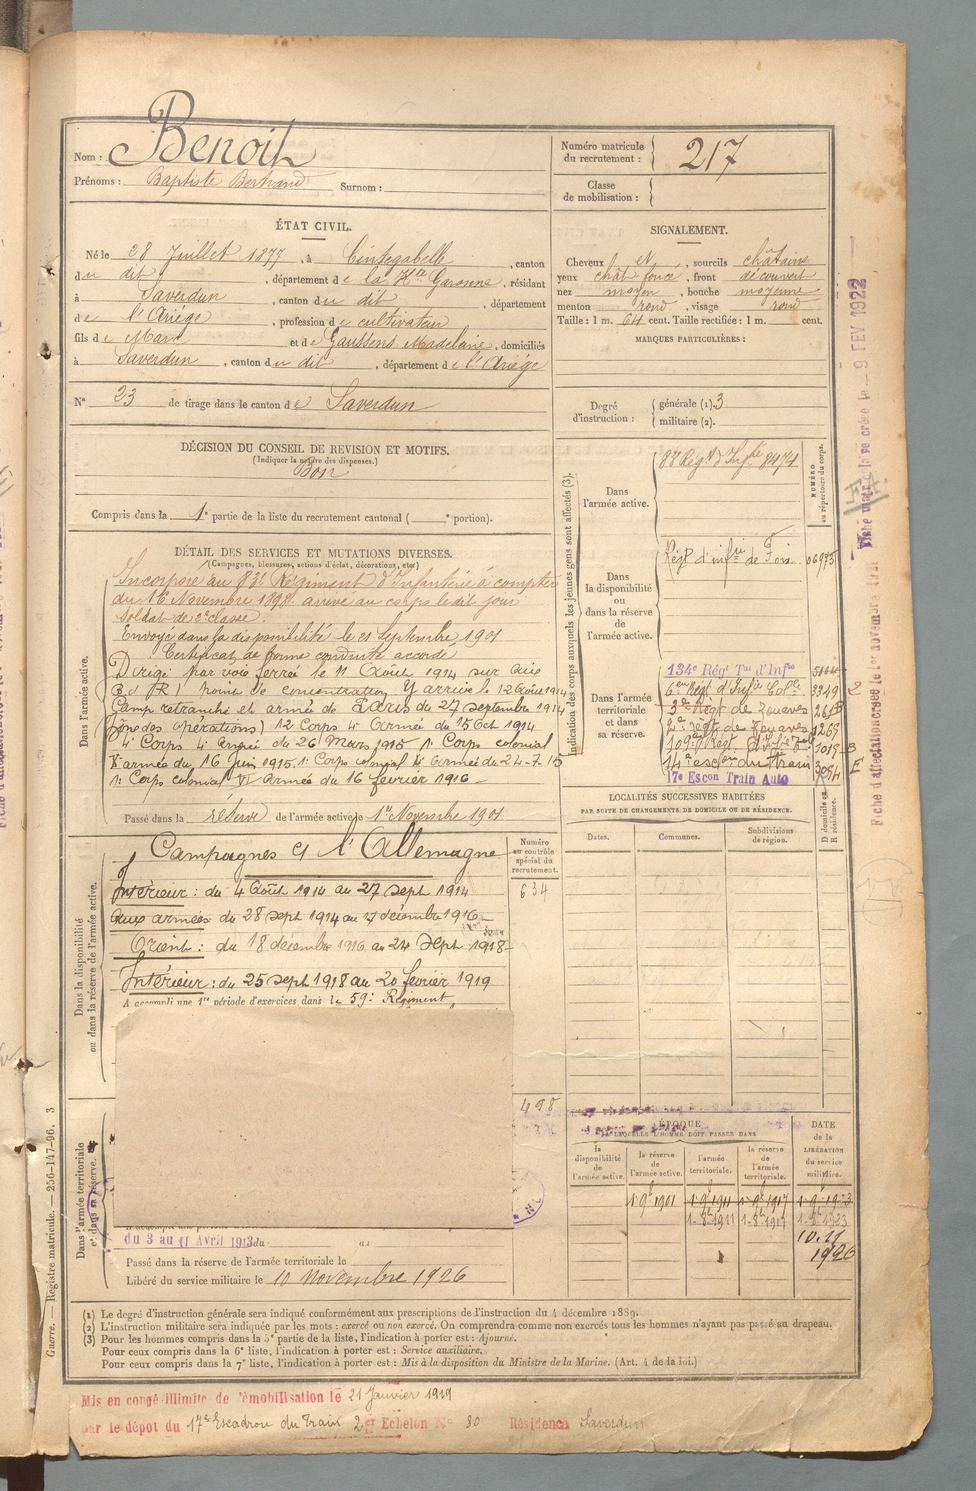 Nom : Benoit
Prénoms : Baptiste Bertrand Surnom :
Numéro matricule du recrutement : 217
Classe de mobilisation :
ÉTAT CIVIL.
Né le 28 Juillet 1877, à Cintegabelle, canton
du dit, département de la Hte Garonne, résidant
à Saverdun, canton du dit, département
de l'Ariége, profession de cultivateur
fils de Marc et de Gaussens Madeleine, domiciliés
à Saverdun, canton du dit, département de l'Ariége
N° 23 de tirage dans le canton de Saverdun
SIGNALEMENT.
Cheveux et, sourcils châtains
yeux chât foncé, front découvert
nez moyen, bouche moyenne
menton rond, visage rond
Taille : 1 m. 64 cent. Taille rectifiée : 1 m. cent.
MARQUES PARTICULIÈRES :
Degré d'instruction : générale (1). 3
militaire (2).
DÉCISION DU CONSEIL DE REVISION ET MOTIFS.
(Indiquer la nature des dispenses.)
Bon
Compris dans la 1e partie de la liste du recrutement cantonal ( e portion).
DÉTAIL DES SERVICES ET MUTATIONS DIVERSES.
(Campagnes, blessures, actions d'éclat, décorations, etc.)
Dans l'armée active.
Incorporé au 83e Régiment d'Infanterie à compter
du 16 Novembre 1898 arrivé au corps le dit jour
Soldat de 2e classe.
Envoyé dans la disponibilité le 21 Septembre 1901
Certificat de bonne conduite accordé
Dirigé par voie ferrée le 11 Août 1914 sur Aix
(B d R) point de concentration. Y arrive le 12 Août 1914
Camp retranché et armée de Paris du 27 septembre 1914
(zône des opérations) 12 Corps 4e Armée du 15 Oct 1914
4e Corps 4e Armée du 26 Mars 1915 1e Corps colonial
V armée du 16 Juin 1915 1e Corps colonial armée du 24-7-15
1e Corps colonial VI armée du 16 fevrier 1916
Passé dans la réserve de l'armée active le 1er Novembre 1901
Indication des corps auxquels les jeunes gens sont affectés (3).
NUMÉRO au répertoire du corps.
Dans l'armée active.
83 Régt d'Infie 8474
Dans la disponibilité ou dans la réserve de l'armée active.
Régt d'infie de Foix 06975
Dans l'armée territoriale et dans sa réserve.
134e Régt Tal d'Infie
6eme Régt d'Infie Colle 3349
3e Régt de Zouaves
2e régt de Zouaves 1269
14e escon du train
17e Escon Train Auto
LOCALITÉS SUCCESSIVES HABITÉES
PAR SUITE DE CHANGEMENTS DE DOMICILE OU DE RÉSIDENCE.
Dates. Communes. Subdivisions de région. D domicile ou R résidence.
Dans la disponibilité ou dans la réserve de l'armée active.
Campagnes c/ l'Allemagne
Intérieur : du 4 Août 1914 au 27 sept 1914
Aux armées du 28 sept 1914 au 17 décembre 1916
Orient : du 18 décembre 1916 au 24 Sept 1918
Intérieur : du 25 sept 1918 au 20 fevrier 1919
A accompli une 1re période d'exercices dans le 59e Régiment
Numéro au contrôle spécial du recrutement.
634
498
Dans l'armée territoriale et dans sa réserve.
du 3 au 11 Avril 1913 du au
Passé dans la réserve de l'armée territoriale le
Libéré du service militaire le 10 Novembre 1926
ÉPOQUE
À LAQUELLE L'HOMME DOIT PASSER DANS
la disponibilité de l'armée active.
la réserve de l'armée active.
l'armée territoriale.
la réserve de l'armée territoriale.
DATE de la LIBÉRATION du service militaire.
1-9bre 1901 1-9bre 1911 1-9bre 1917 1-9-1923
1-8bre 1911 1-8bre 1917 1-8bre 1923
10.11
1926
(1) Le degré d'instruction générale sera indiqué conformément aux prescriptions de l'instruction du 4 décembre 1889.
(2) L'instruction militaire sera indiquée par les mots : exercé ou non exercé. On comprendra comme non exercés tous les hommes n'ayant pas passé au drapeau.
(3) Pour les hommes compris dans la 5e partie de la liste, l'indication à porter est : Ajourné.
Pour ceux compris dans la 6e liste, l'indication à porter est : Service auxiliaire.
Pour ceux compris dans la 7e liste, l'indication à porter est : Mis à la disposition du Ministre de la Marine. (Art. 4 de la loi.)
Mis en congé illimité de démobilisation le 21 Janvier 1919
par le dépôt du 17e Escadron du Train 2er Echelon N° 80 Résidence Saverdun
Guerre. — Registre matricule. — 256-147-96. 3
Fiche matricule créée le 9 FEV 1922
Fiche d'affectation créée le 1er novembre 1921